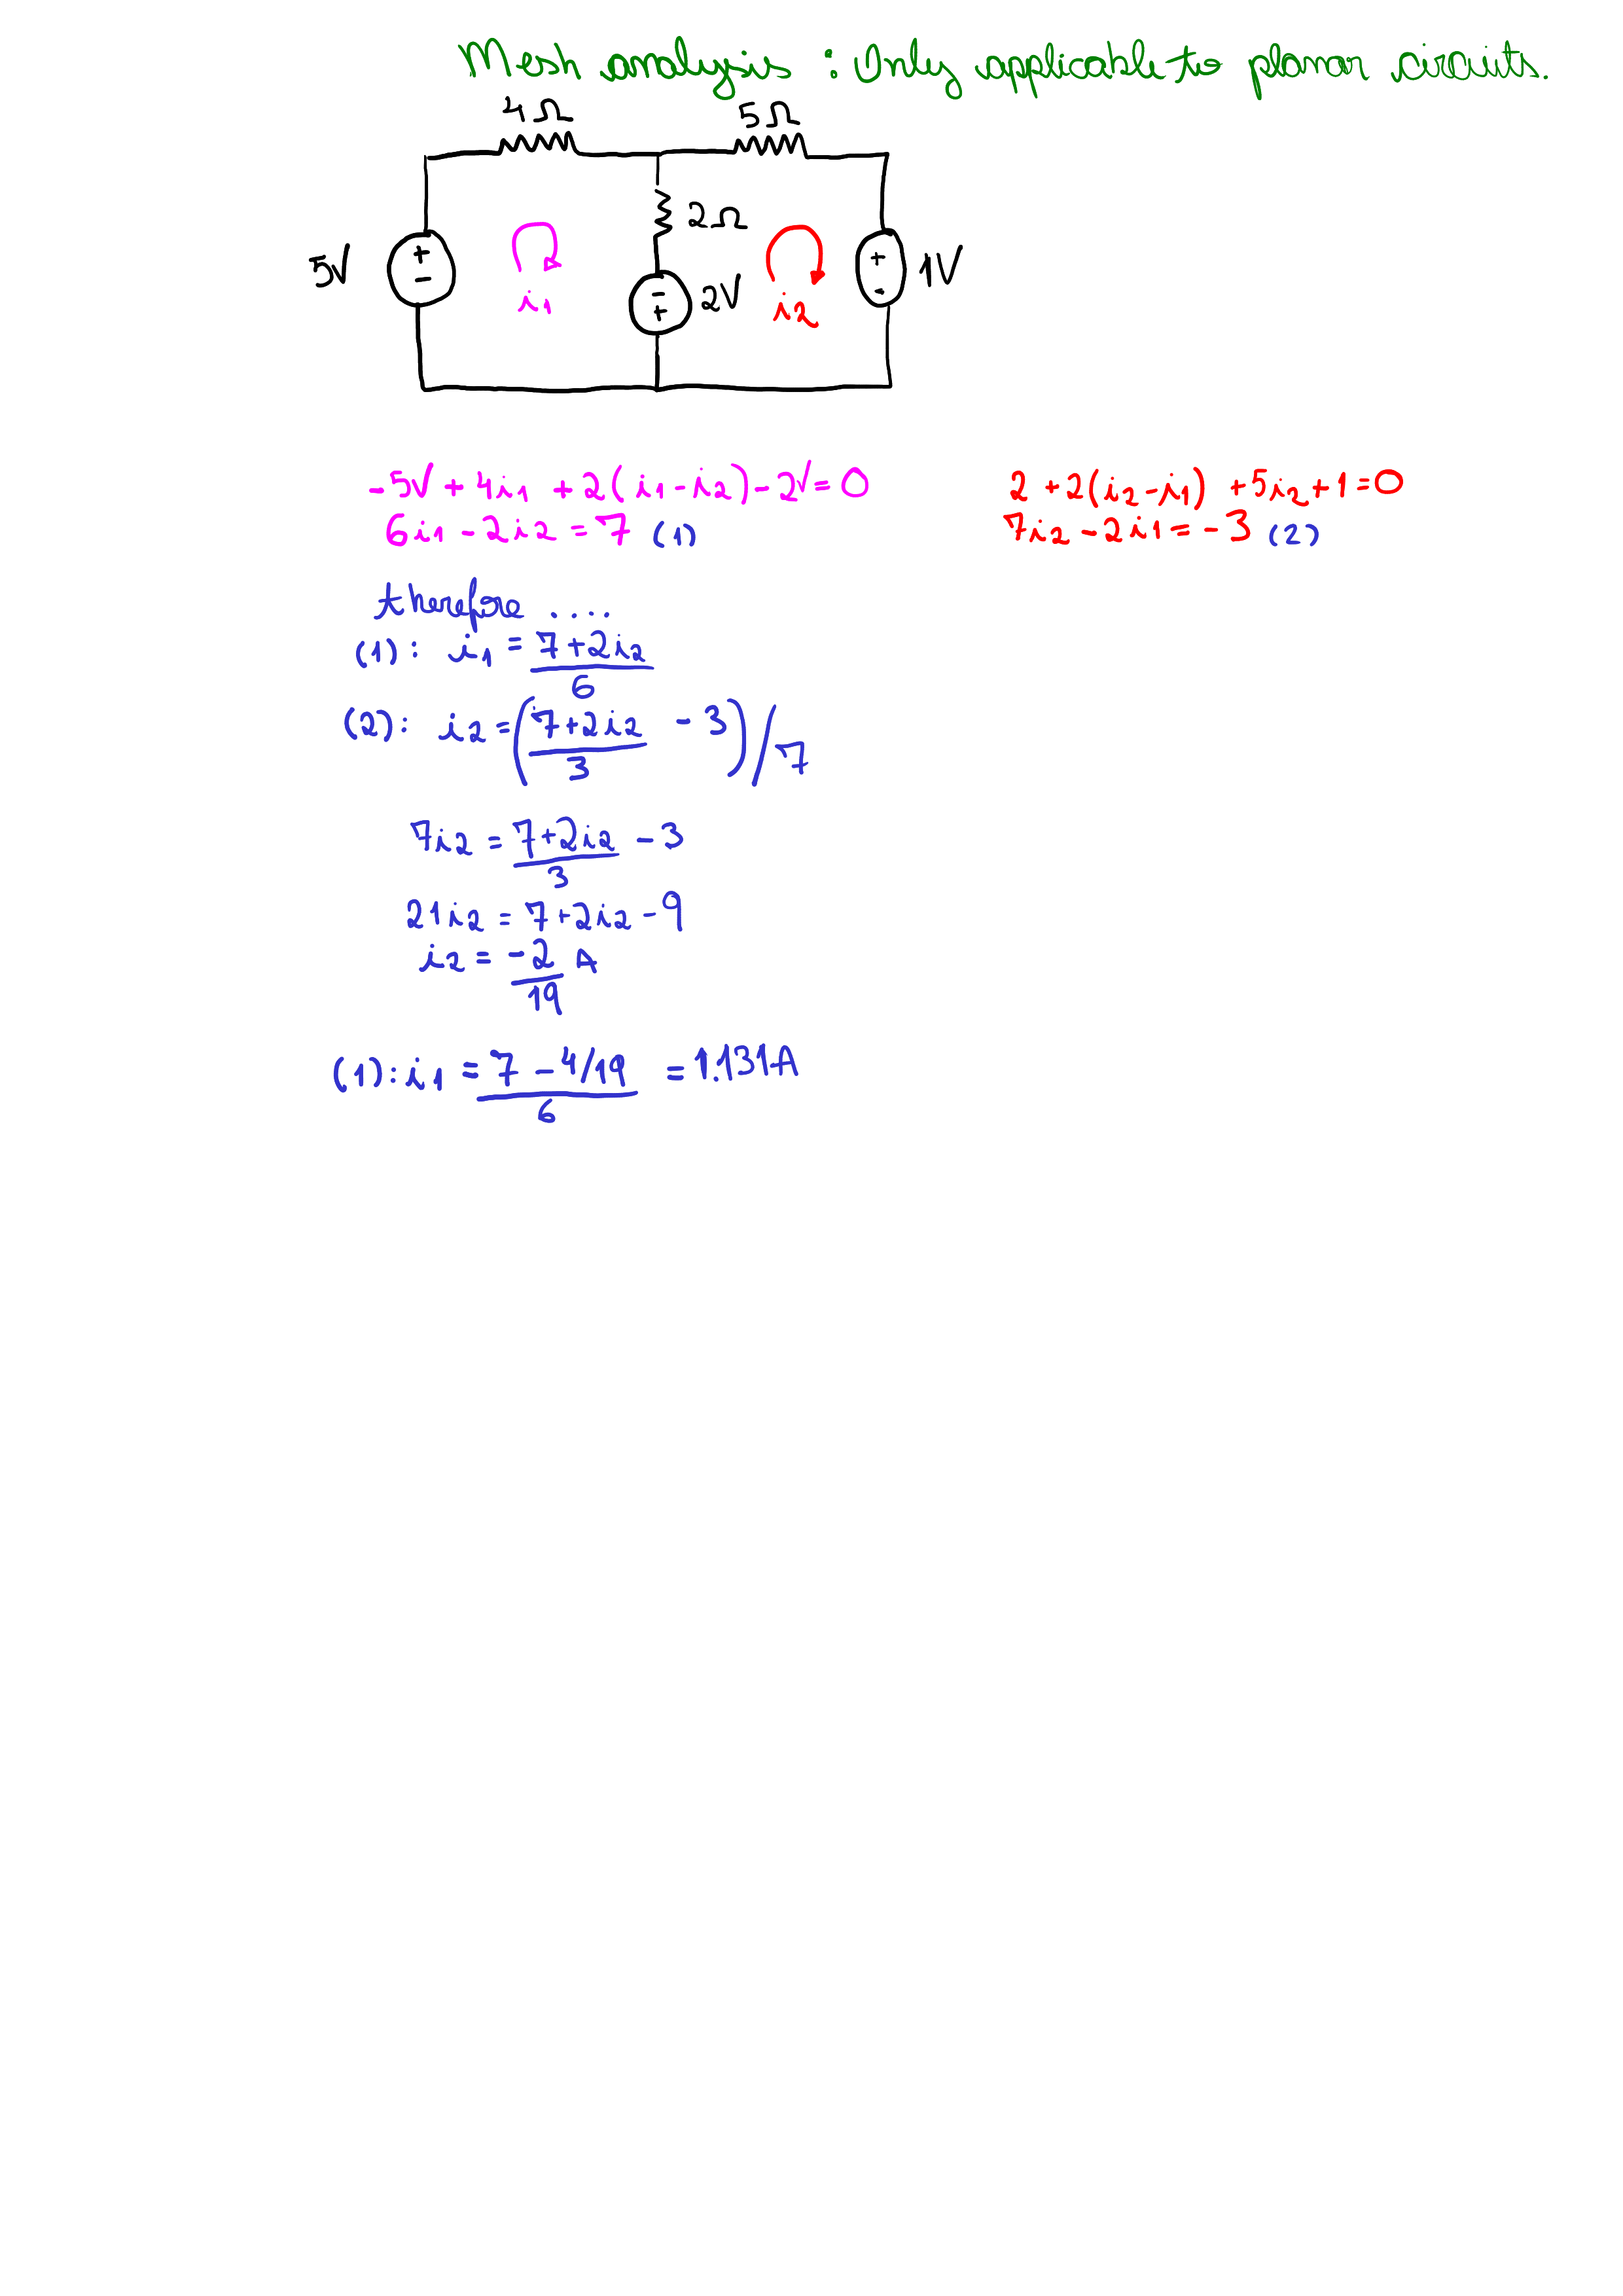 Mesh analysis : Only applicable to planar circuits.
4Ω 5Ω
2Ω
5V + - i1 - + 2V i2 + - 1V
-5V + 4i1 + 2(i1-i2) - 2V = 0
6i1 - 2i2 = 7 (1)
2 + 2(i2-i1) + 5i2 + 1 = 0
7i2 - 2i1 = -3 (2)
therefore ....
(1): i1 = 7+2i2 / 6
(2): i2 = (7+2i2 / 3 - 3) / 7
7i2 = 7+2i2 / 3 - 3
21i2 = 7+2i2 - 9
i2 = -2 / 19 A
(1): i1 = 7 - 4/19 / 6 = 1.131A